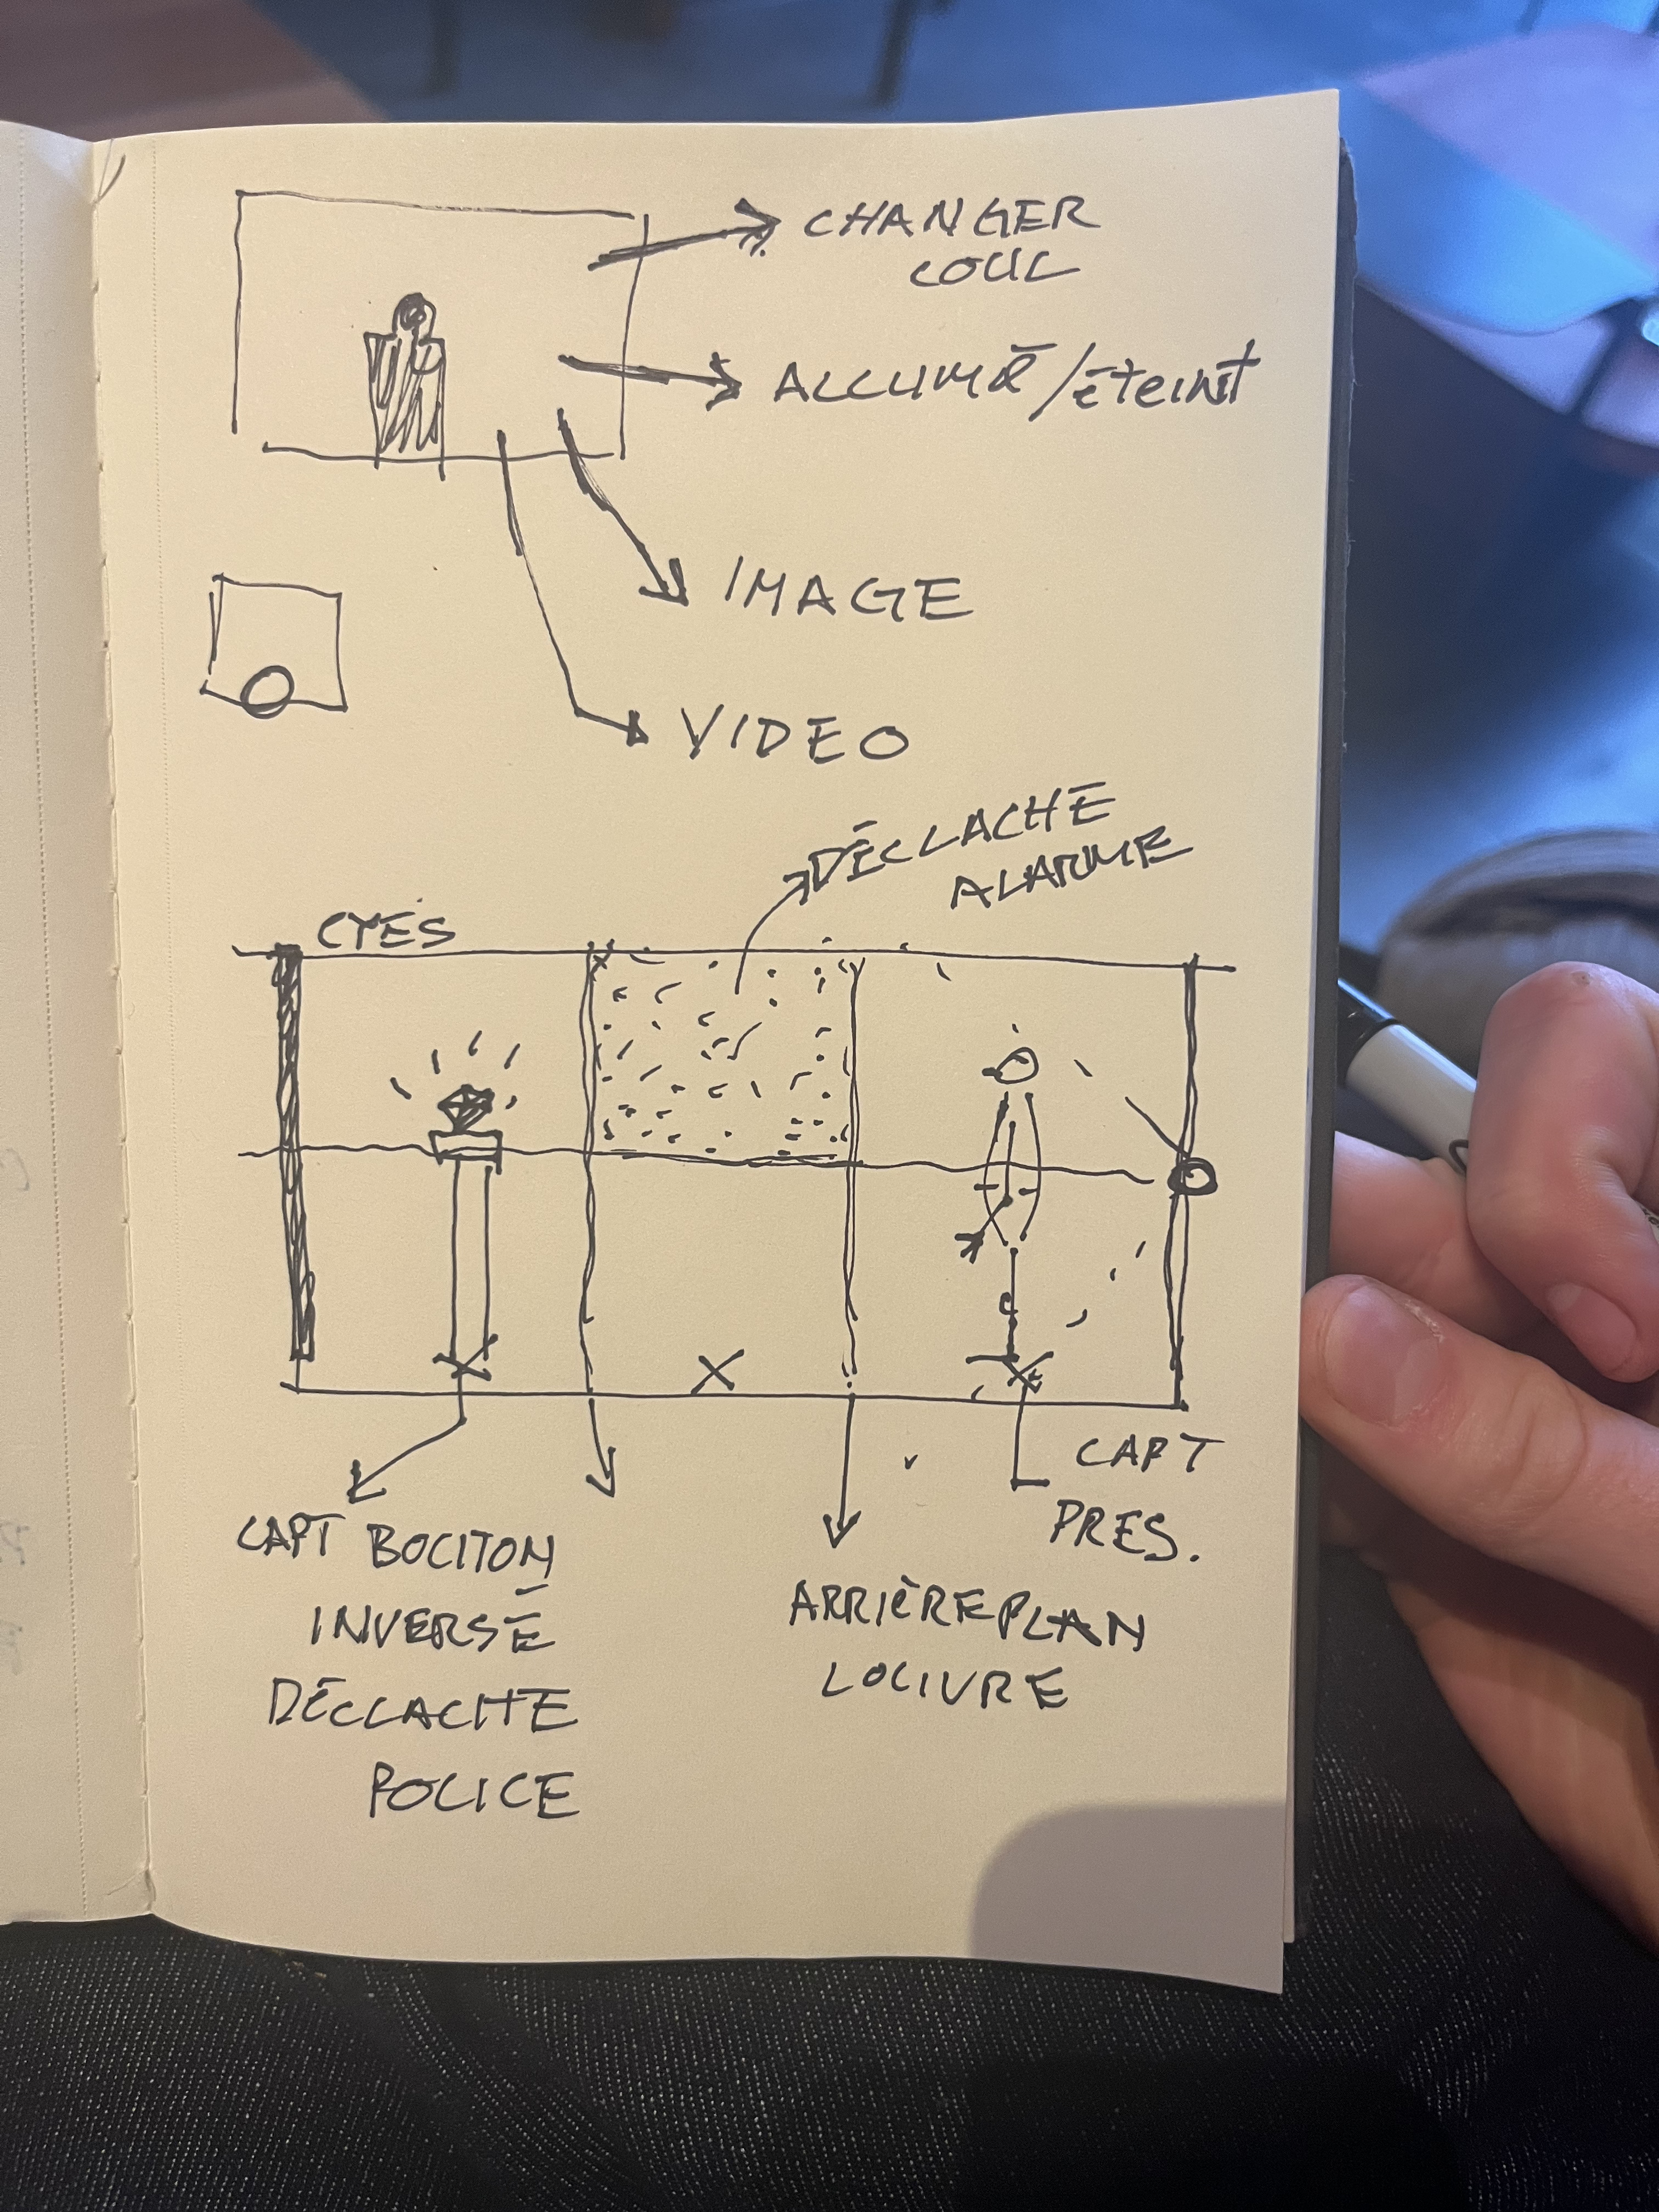 CHANGER
COUL
ALLUMÉ/éteint
IMAGE
VIDEO
DÉCLACHE
ALARME
CYES
CAPT
PRES.
CAPT BOUTON
INVERSÉ
DÉCLACHE
POLICE
ARRIÈRE PLAN
LOUVRE